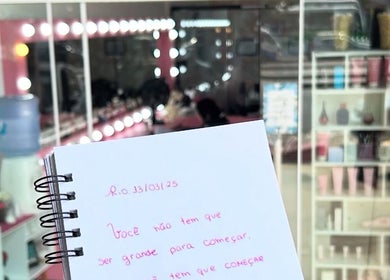 R.O. 13/03/25
Você não tem que
ser grande para começar,
tem que começar